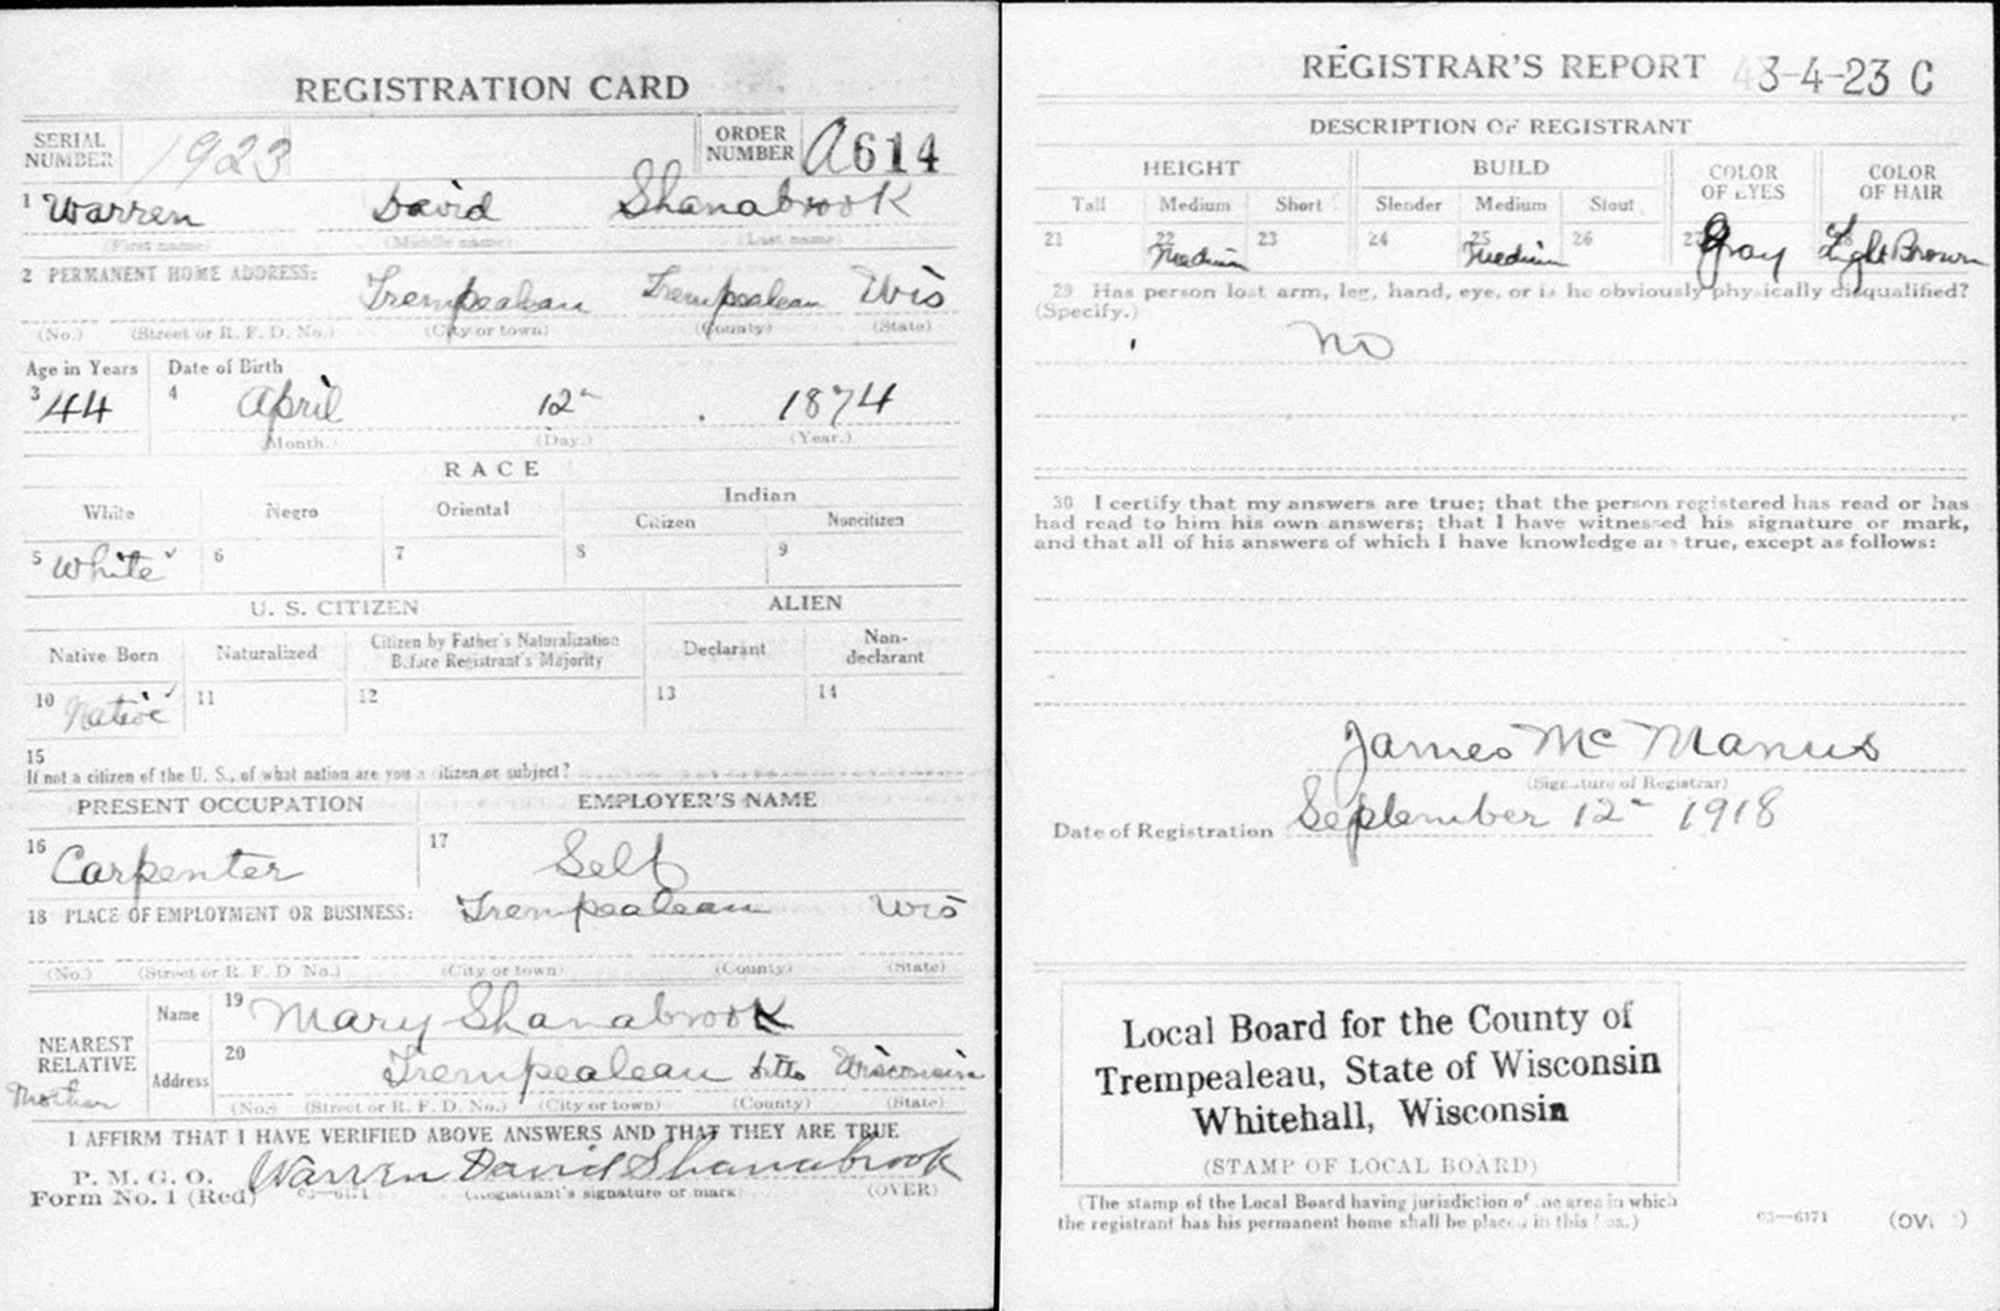 REGISTRATION CARD
SERIAL NUMBER 1923 ORDER NUMBER A614
1 Warren David Shanabrook
(First name) (Middle name) (Last name)
2 PERMANENT HOME ADDRESS:
Trempealeau Trempealeau Wis
(No.) (Street or R. F. D. No.) (City or town) (County) (State)
Age in Years Date of Birth
3 44 4 April 12" 1874
(Month.) (Day.) (Year.)
RACE
White Negro Oriental Indian
Citizen Noncitizen
5 White ✓ 6 7 8 9
U. S. CITIZEN ALIEN
Native Born Naturalized Citizen by Father's Naturalization Before Registrant's Majority Declarant Non-declarant
10 Native ✓ 11 12 13 14
15
If not a citizen of the U. S., of what nation are you a citizen or subject?
PRESENT OCCUPATION EMPLOYER'S NAME
16 Carpenter 17 Self
18 PLACE OF EMPLOYMENT OR BUSINESS: Trempealeau Wis
(No.) (Street or R. F. D. No.) (City or town) (County) (State)
NEAREST RELATIVE Mother
Name 19 Mary Shanabrook
Address 20 Trempealeau ditto Wisconsin
(No.) (Street or R. F. D. No.) (City or town) (County) (State)
I AFFIRM THAT I HAVE VERIFIED ABOVE ANSWERS AND THAT THEY ARE TRUE
P. M. G. O.
Form No. 1 (Red) 03—6171 Warren David Shanabrook
(Registrant's signature or mark) (OVER)
REGISTRAR'S REPORT 3-4-23 C
DESCRIPTION OF REGISTRANT
HEIGHT BUILD COLOR OF EYES COLOR OF HAIR
Tall Medium Short Slender Medium Stout
21 22 Medium 23 24 25 Medium 26 27 Gray Light Brown
29 Has person lost arm, leg, hand, eye, or is he obviously physically disqualified?
(Specify.)
No
30 I certify that my answers are true; that the person registered has read or has
had read to him his own answers; that I have witnessed his signature or mark,
and that all of his answers of which I have knowledge are true, except as follows:
James McManus
(Signature of Registrar)
Date of Registration September 12" 1918
Local Board for the County of
Trempealeau, State of Wisconsin
Whitehall, Wisconsin
(STAMP OF LOCAL BOARD)
(The stamp of the Local Board having jurisdiction of the area in which
the registrant has his permanent home shall be placed in this box.)
03—6171 (OVER)